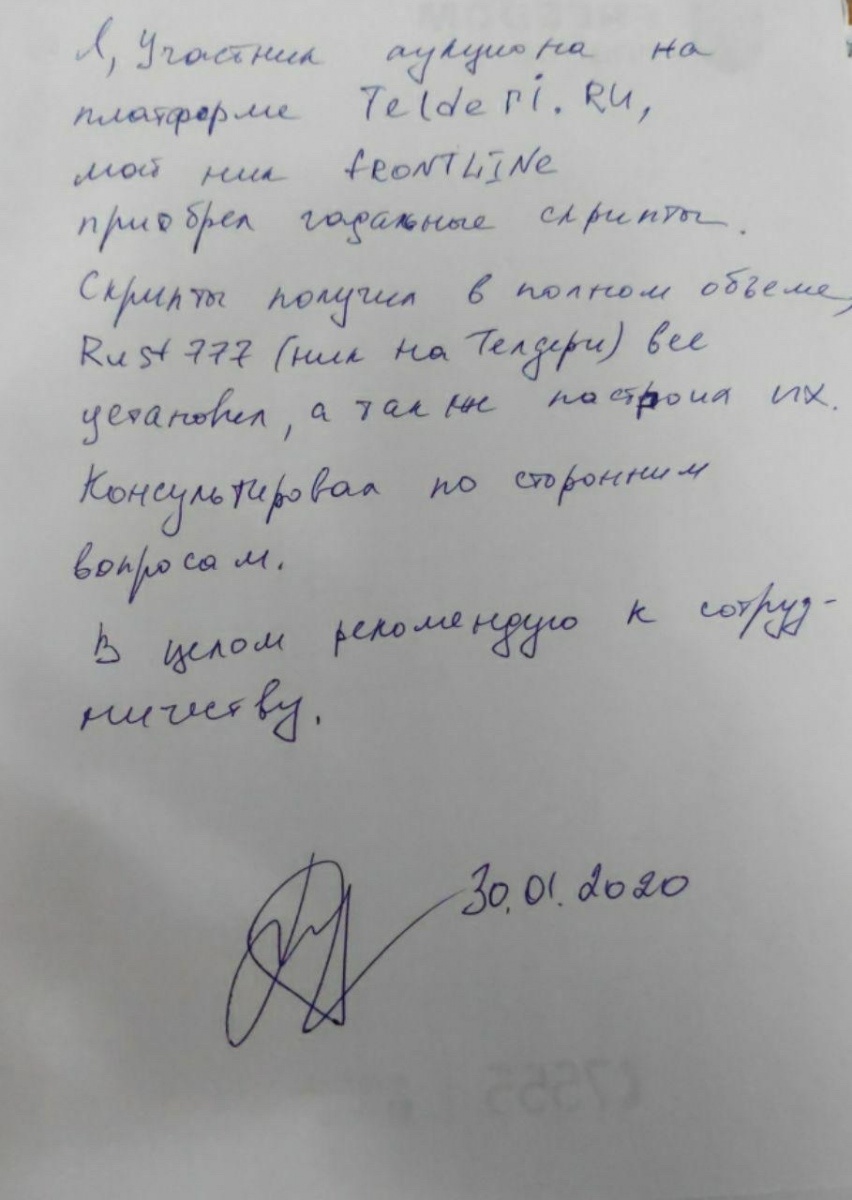 Я, Участник аукциона на
платформе Telderi.RU,
мой ник fRONTLINe
приобрел гадальные скрипты.
Скрипты получил в полном объеме,
Rust777 (ник на Телдери) все
установил, а так же настроил их.
Консультировал по сторонним
вопросам.
В целом рекомендую к сотруд-
ничеству.
30.01.2020